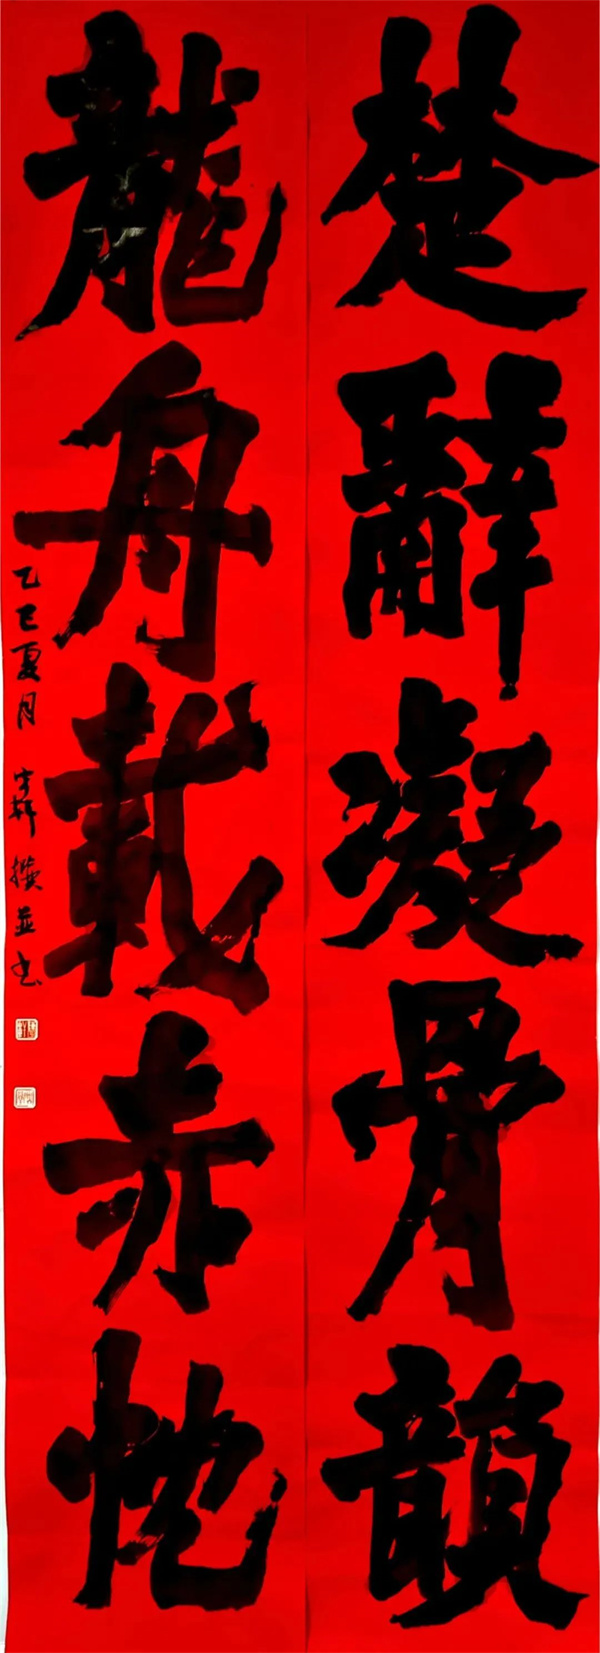 楚辭凝骨韻
龍舟載赤忱
乙巳夏月 撰並书